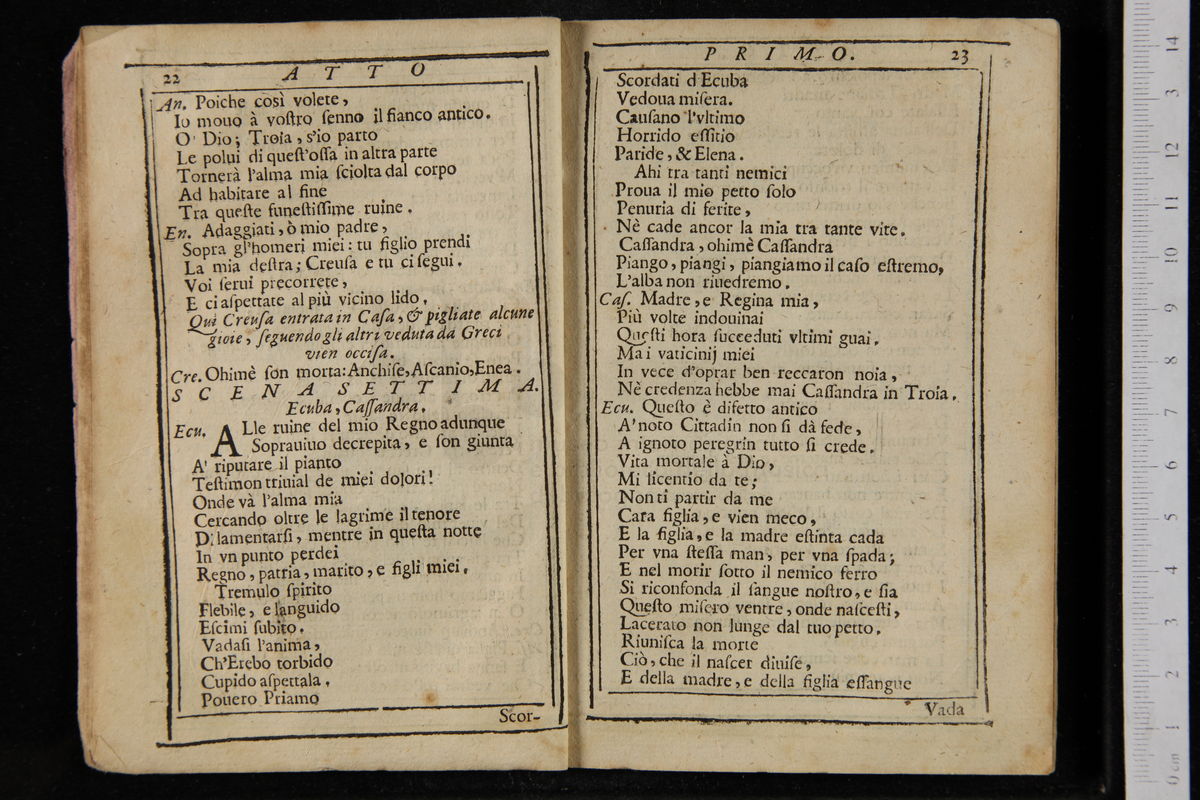 22 ATTO
An. Poiche così volete,
Io mouo à voſtro ſenno il fianco antico.
O' Dio; Troia, s'io parto
Le polui di queſt'oſſa in altra parte
Tornerà l'alma mia ſciolta dal corpo
Ad habitare al fine
Tra queſte funeſtiſſime ruine.
En. Adaggiati, ò mio padre,
Sopra gl'homeri miei: tu figlio prendi
La mia deſtra; Creuſa e tu ci ſegui.
Voi ſerui precorrete,
E ci aſpettate al più vicino lido.
Qui Creuſa entrata in Caſa, & pigliate alcune
gioie, ſeguendo gli altri veduta da Greci
vien occiſa.
Cre. Ohimè ſon morta: Anchiſe, Aſcanio, Enea.
SCENA SETTIMA.
Ecuba, Caſſandra.
Ecu. ALle ruine del mio Regno adunque
Soprauiuo decrepita, e ſon giunta
A' riputare il pianto
Teſtimon triuial de miei dolori!
Onde và l'alma mia
Cercando oltre le lagrime il tenore
Di lamentarſi, mentre in queſta notte
In vn punto perdei
Regno, patria, marito, e figli miei.
Tremulo ſpirito
Flebile, e languido
Eſcimi ſubito.
Vadaſi l'anima,
Ch'Erebo torbido
Cupido aſpettala.
Pouero Priamo
Scor-
PRIMO. 23
Scordati d'Ecuba
Vedoua miſera.
Cauſano l'vltimo
Horrido eſſitio
Paride, & Elena.
Ahi tra tanti nemici
Proua il mio petto ſolo
Penuria di ferite,
Nè cade ancor la mia tra tante vite.
Caſſandra, ohimè Caſſandra
Piango, piangi, piangiamo il caſo eſtremo,
L'alba non riuedremo.
Caſ. Madre, e Regina mia,
Più volte indouinai
Queſti hora ſucceduti vltimi guai.
Ma i vaticinij miei
In vece d'oprar ben reccaron noia,
Nè credenza hebbe mai Caſſandra in Troia.
Ecu. Queſto è difetto antico
A' noto Cittadin non ſi dà fede,
A ignoto peregrin tutto ſi crede.
Vita mortale à Dio,
Mi licentio da te;
Non ti partir da me
Cara figlia, e vien meco,
E la figlia, e la madre eſtinta cada
Per vna ſteſſa man, per vna ſpada;
E nel morir ſotto il nemico ferro
Si riconfonda il ſangue noſtro, e ſia
Queſto miſero ventre, onde naſceſti,
Lacerato non lunge dal tuo petto.
Riuniſca la morte
Ciò, che il naſcer diuiſe,
E della madre, e della figlia eſſangue
Vada
0 cm 1 2 3 4 5 6 7 8 9 10 11 12 3 14